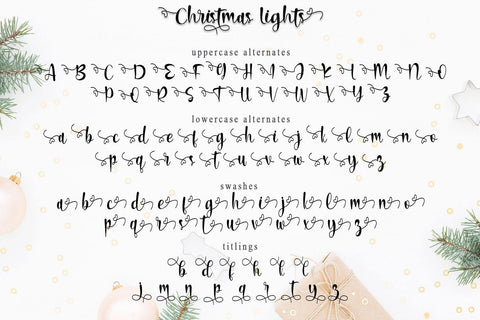 Christmas lights
uppercase alternates
A B C D E F G H I J K L M N O
P Q R S T U V W X Y Z
lowercase alternates
a b c d e f g h i j k l m n o
p q r s t u v w x y z
swashes
a b c d e f g h i j k l m n o
p q r s t u v w x y z
titlings
b d f h k l
j m n p q r t y z